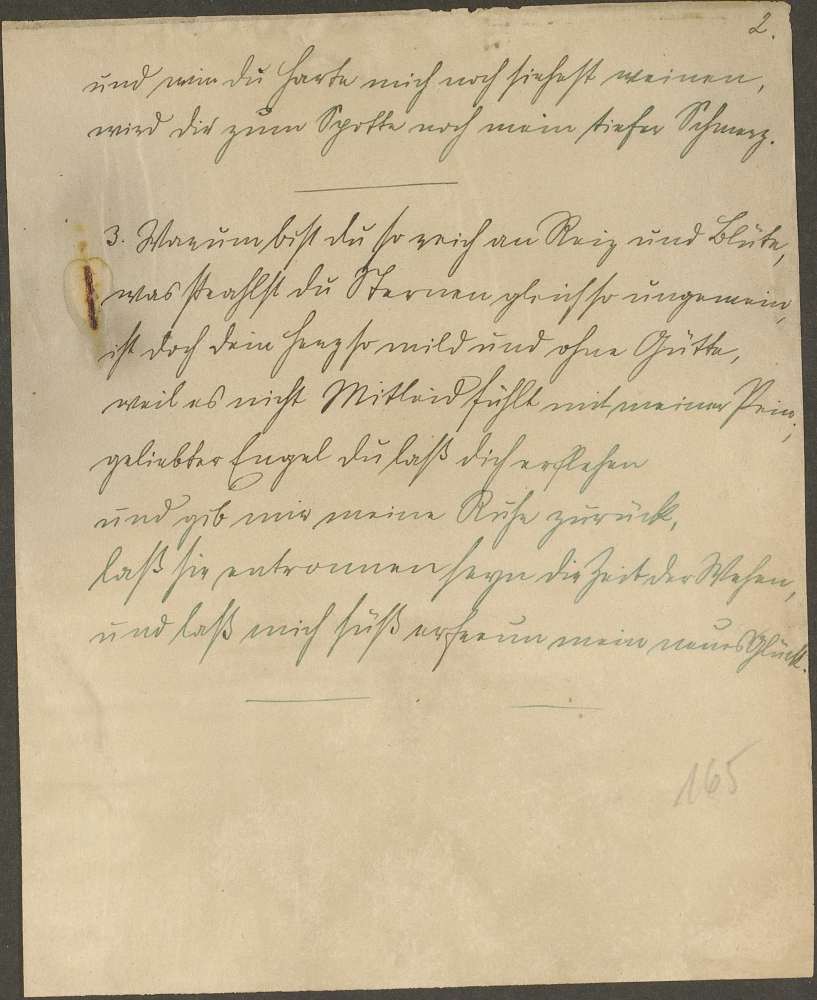 2.
und wenn du Harte mich noch siehest weinen,
wird dir zum Spotte noch mein tiefer Schmerz.
3. Warum bist du so reich an Reiz und Blüte,
was strahlst du Sternen gleich so ungemein,
ist doch dein Herz so wild und ohne Gütte,
weil es nicht Mitleid fühlt mit meiner Pein;
geliebter Engel du laß dich erflehen
und gib mir meine Ruhe zurück,
laß sie entronnen seyn die Zeit der Wehen,
und laß mich süß erfreun mein neues Glück.
165